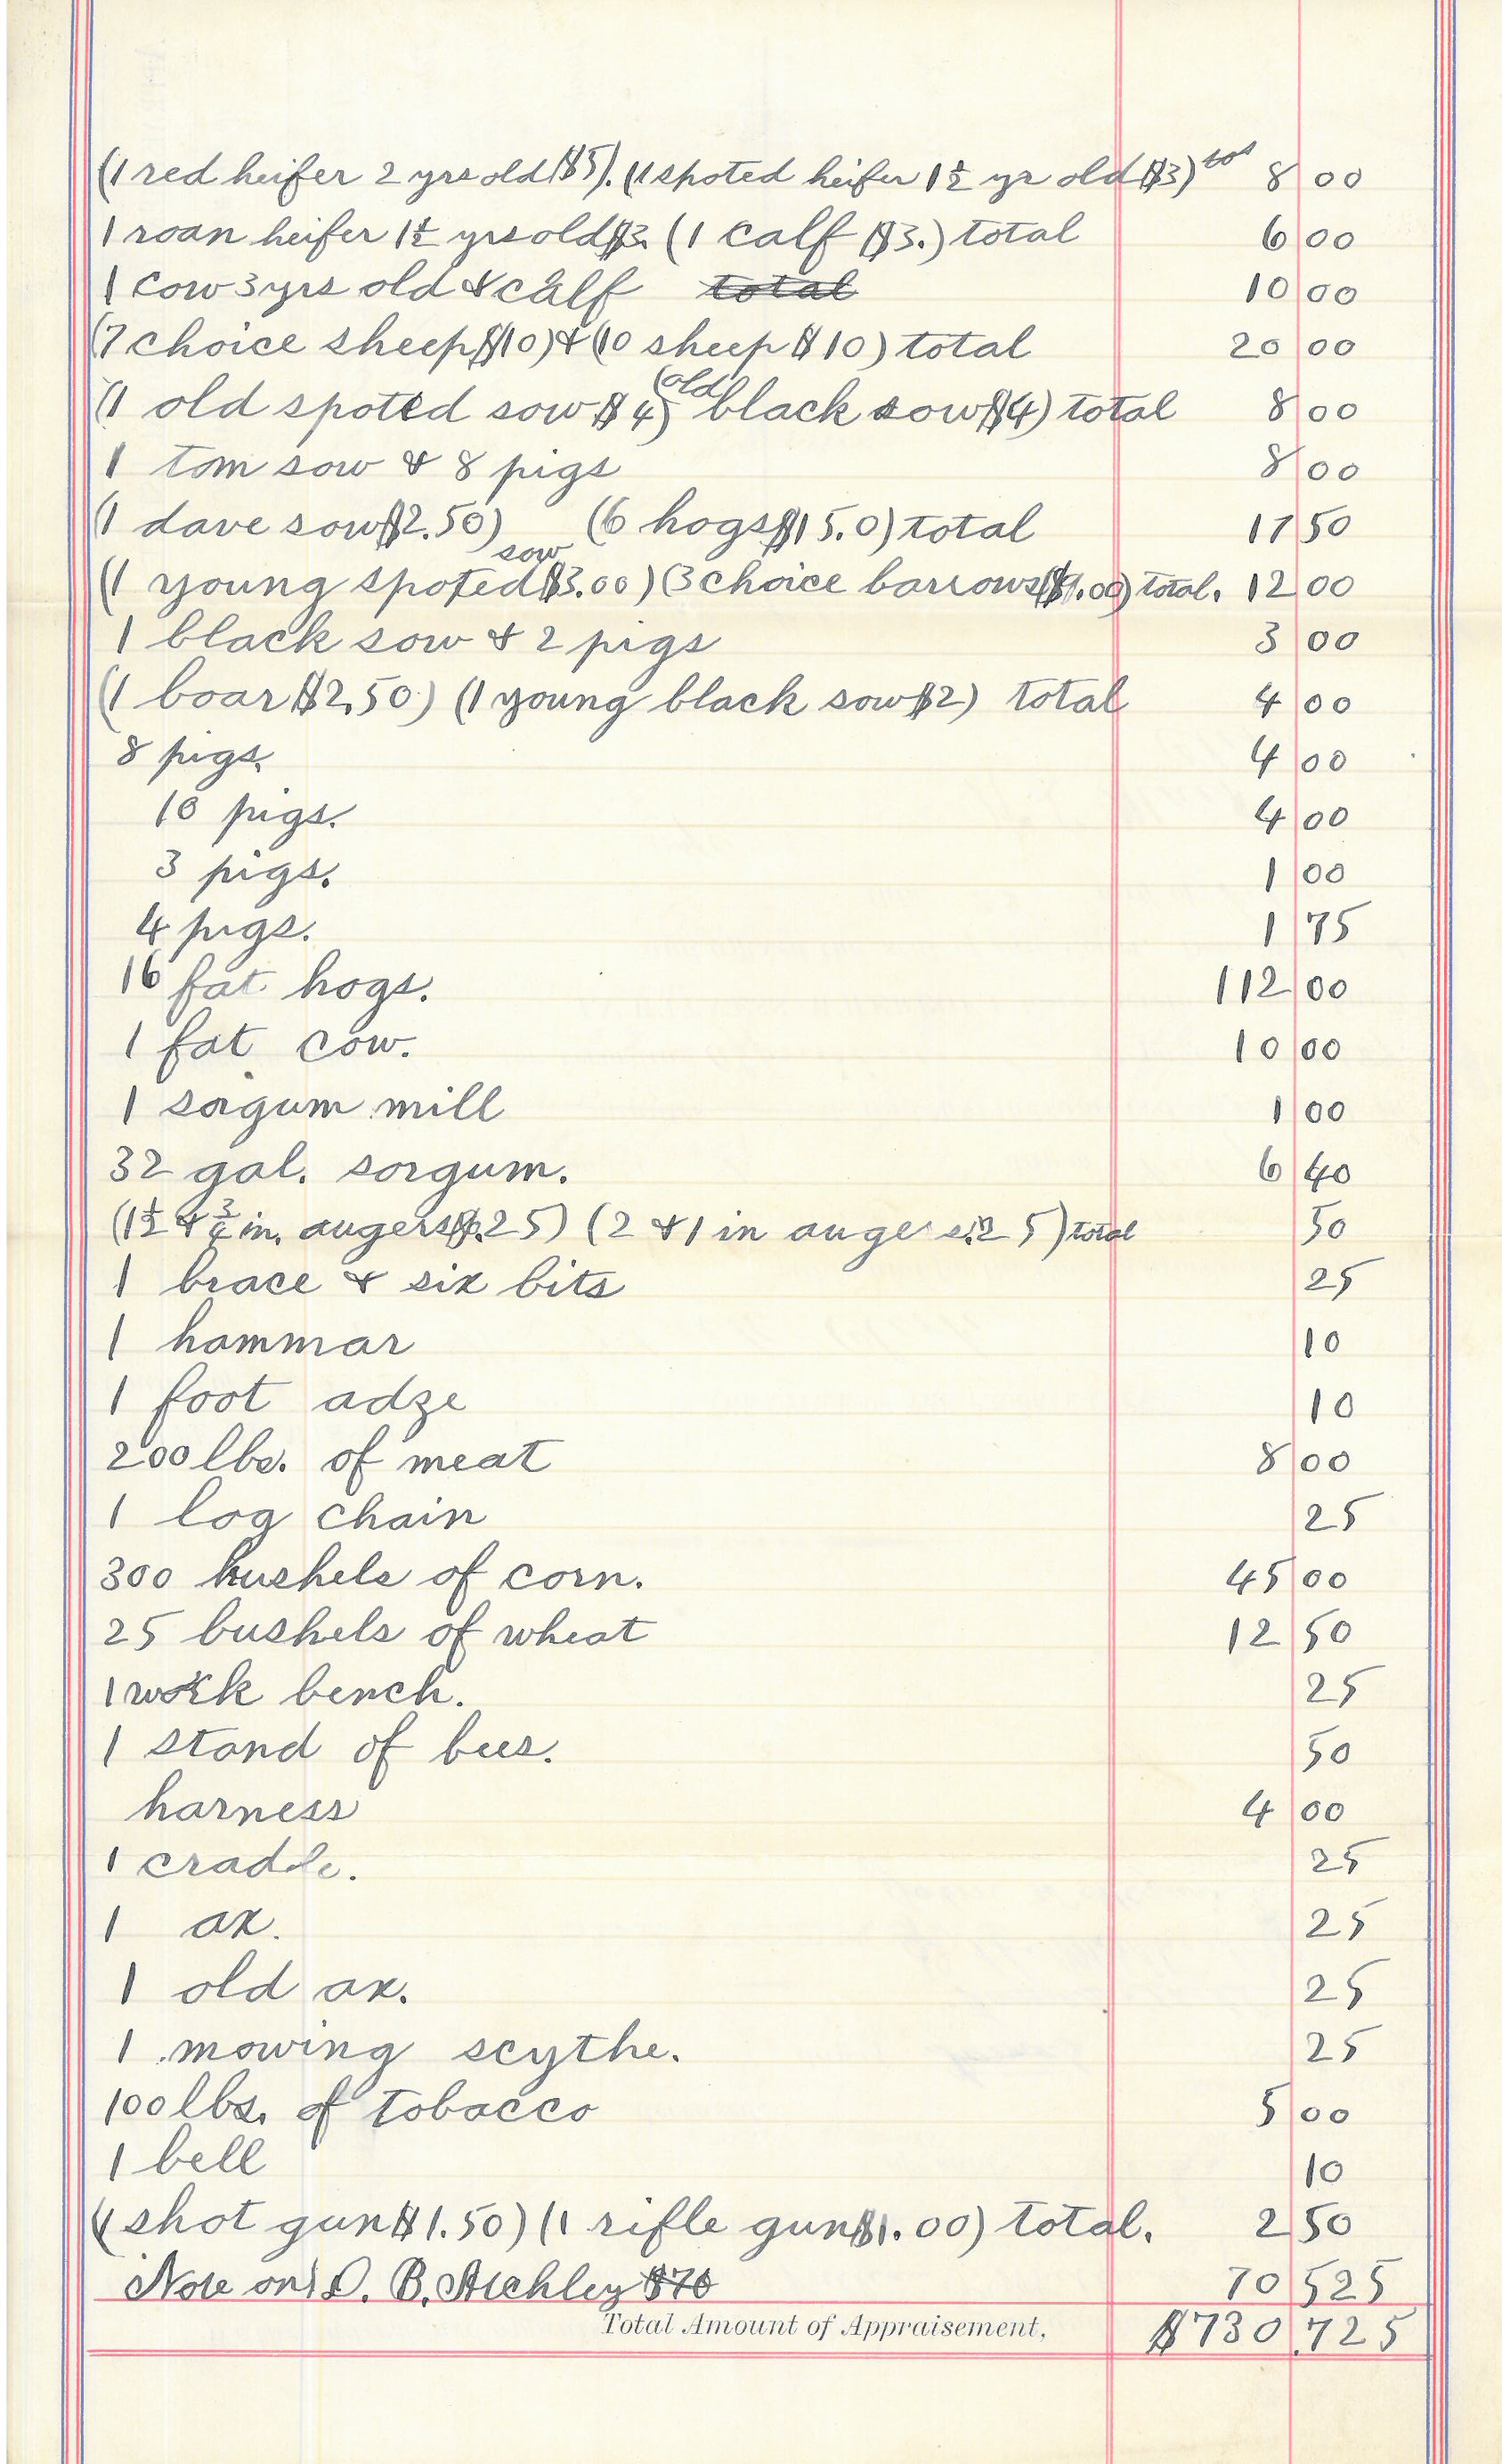 (1 red heifer 2 yrs old $5). (1 spoted heifer 1½ yr old $3) tot 8 00
1 roan heifer 1½ yrs old $3. (1 calf $3.) total 6 00
1 cow 3 yrs old & calf total 10 00
(7 choice sheep $10) & (10 sheep $10) total 20 00
(1 old spoted sow $4) (old black sow $4) total 8 00
1 tom sow & 8 pigs 8 00
(1 dave sow $2.50) (6 hogs $15.0) total 17 50
(1 young spoted sow $3.00) (3 choice barrows $9.00) total. 12 00
1 black sow & 2 pigs 3 00
(1 boar $2.50) (1 young black sow $2) total 4 00
8 pigs. 4 00
10 pigs. 4 00
3 pigs. 1 00
4 pigs. 1 75
16 fat hogs. 112 00
1 fat cow. 10 00
1 sorgum mill 1 00
32 gal. sorgum. 6 40
(1½ & ¾ in. augers $.25) (2 & 1 in augers .25) total 50
1 brace & six bits 25
1 hammar 10
1 foot adze 10
200 lbs. of meat 8 00
1 log chain 25
300 bushels of corn. 45 00
25 bushels of wheat 12 50
1 work bench. 25
1 stand of bees. 50
harness 4 00
1 cradle. 25
1 ax. 25
1 old ax. 25
1 mowing scythe. 25
100 lbs. of tobacco 5 00
1 bell 10
(1 shot gun $1.50) (1 rifle gun $1.00) total. 2 50
Note on D. B. Atchley $70 70 525
Total Amount of Appraisement, $730.725